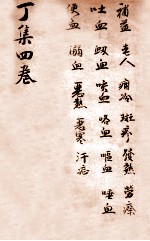 補益 老人 痼冷 斑疹 發熱 勞瘵
吐血 衂血 咳血 咯血 嘔血 唾血
便血 溺血 惡熱 惡寒 汗症
丁集四卷